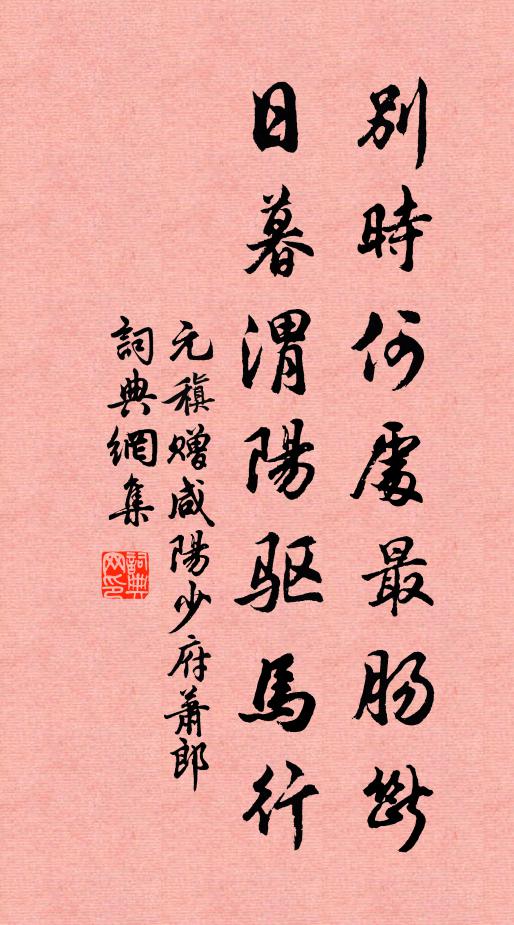 別時何處最腸斷
日暮渭陽驅馬行
元稹贈咸陽少府蕭郎
詞典網集
詞典网印